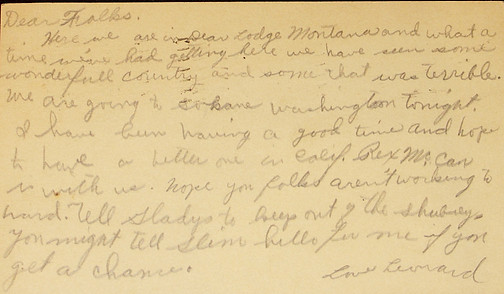 Dear Folks.
Here we are in Dear Lodge Montana and what a
time we've had getting here we have seen some
wonderfull country and some that was terrible.
We are going to Spokane Washington tonight.
I have been having a good time and hope
to have a better one in Calif. Rex McCan
is with us. Hope you folks aren't working to
hard. Tell Gladys to keep out of the
You might tell Slim hello for me if you
get a chance.
Love Leonard